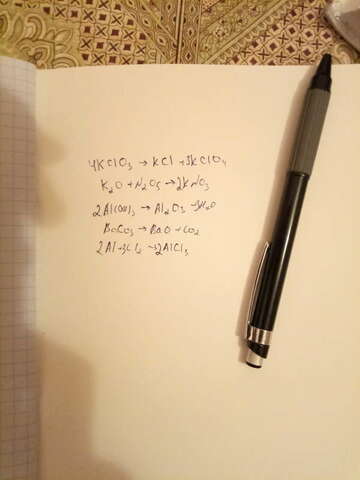 4KClO₃ → KCl + 3KClO₄
K₂O + N₂O₅ → 2KNO₃
2Al(OH)₃ → Al₂O₃ + 3H₂O
BaCO₃ → BaO + CO₂
2Al + 3Cl₂ → 2AlCl₃